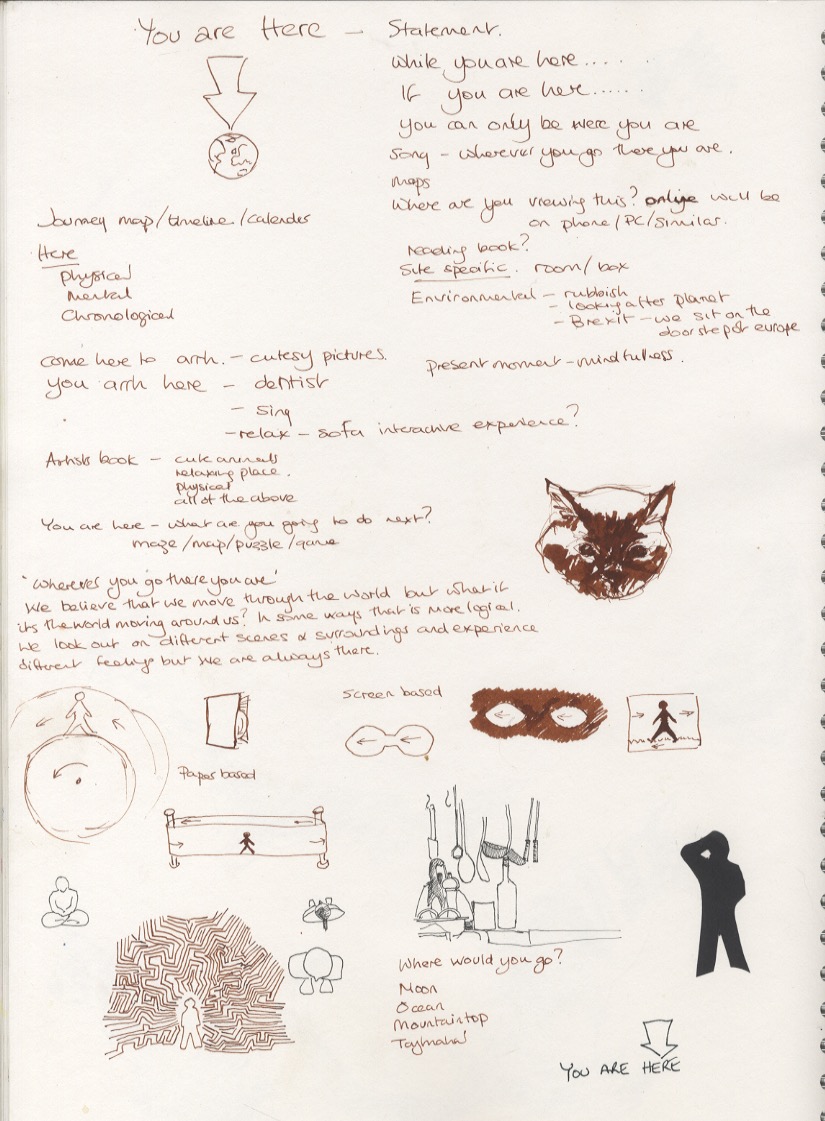 You are Here - Statement.
While you are here.....
If you are here......
you can only be were you are
Song - wherever you go there you are.
maps
Where are you viewing this? online will be
on phone/PC/Similar.
Journey map/timeline/calender
Here
physical
mental
Chronological
reading book?
Site specific. room/box
Environmental - rubbish
- looking after planet
- Brexit - we sit on the
doorstep of europe
come here to arrh. - cutesy pictures.
Present moment - mindfullness.
you arrh here - dentist
- sing
- relax - sofa interactive experience?
Artists book - cute animals
relaxing place.
physical
all of the above
You are here - what are you going to do next?
maze/map/puzzle/game
'Wherever you go there you are'
We believe that we move through the world but what if
its the world moving around us? In some ways that is more logical.
We look out on different scenes & surroundings and experience
different feelings but we are always there.
Screen based
Paper based
Where would you go?
Moon
Ocean
Mountaintop
Tajmahal
YOU ARE HERE